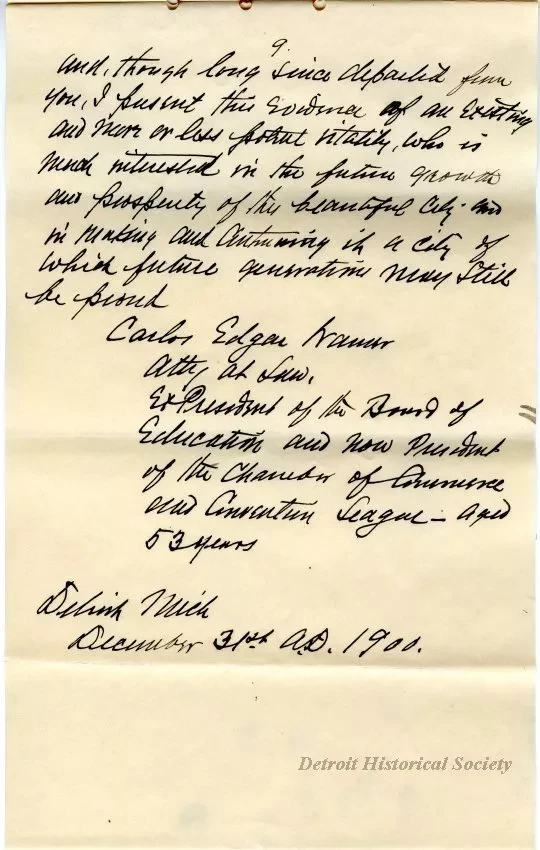 9
and, though long since departed from
you, I present this Evidence of an Existing
and more or less potent vitality, who is
much interested in the future growth
and prosperity of this beautiful City and
in making and it a city of
which future generations may still
be proud
Carlos Edgar Warner
Atty at Law.
Ex President of the Board of
Education and now President
of the Chamber of Commerce
and Convention League - aged
53 years
Detroit Mich
December 31st A.D. 1900.
Detroit Historical Society